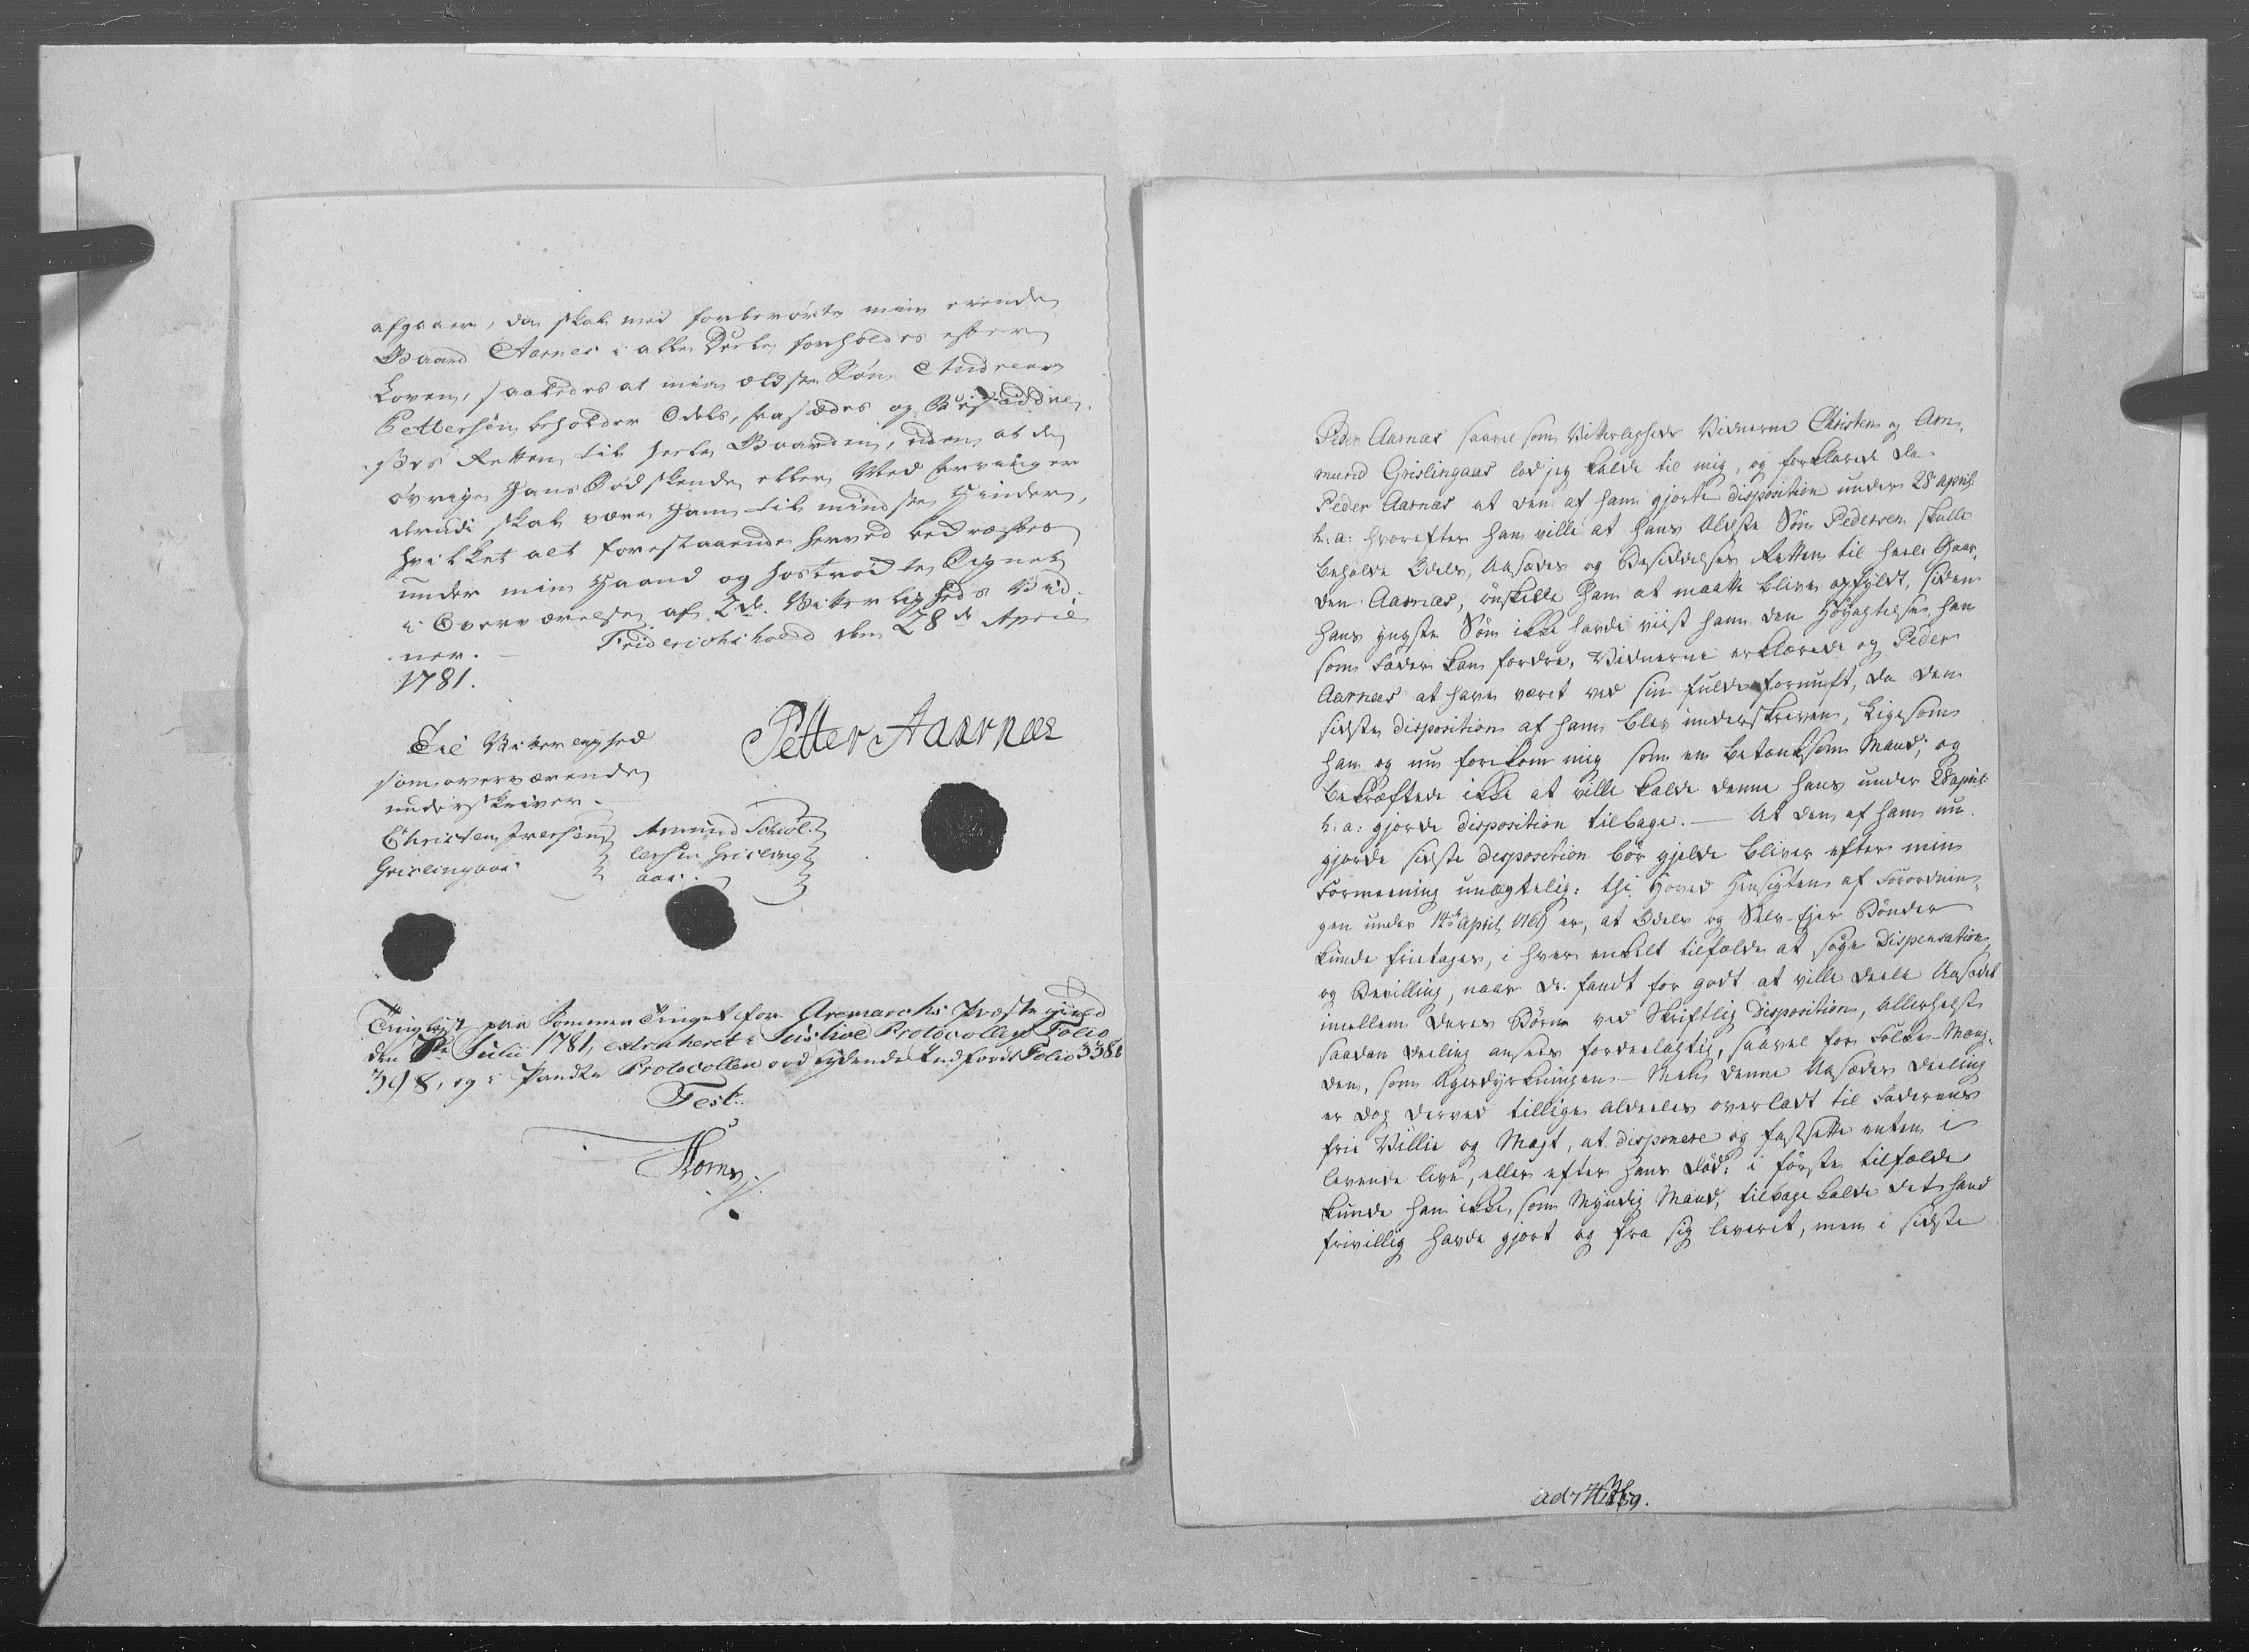 afgaaer, da skal med forberörte min eiende
Gaard Aarnes i alle Deele forholdes efter
Loven, saaledes at min ældste Sön Andreas
Pettersön beholder Odels, Aasædes og Besiddel
ses Retten til heele Gaarden, uden at de
övrige hans Sødskende eller Med Arvinger
derudi skal være ham til mindste Hinder,
hvilket alt forestaaende herved bekræftes
under min Haand og hoströikte Signet
i Overværelse af 2de Vitterligheds Vid-
ner. Friderichshald den 28de April
1781.
Petter Aaarnæs
Til Vitterlighed
som overværende
underskriver.
Christen Iversen
Grislingaas.
Amund Schiöl-
lersen Grisling
aas.
Tinglyst paa Sommer Tinget for Aremarchs Præstegield
den Julii 1781, extraheret i Justice Protocollen Folio
398, og i Pandte Protocollen ordlydende Indfördt Folio 338
Test:
Peder Aarnæs saavel som Vitterligheds Vidnerne Christen og Am-
mund Grislingaas lod jeg kalde til mig, og forklarede da
Peder Aarnæs at den af ham gjorte disposition under 28 April
h: a: hvorefter han ville at hans Ældste Sön Pedersen skulle
beholde Odels, Aasædes og Besiddelses Retten til heele Gaar-
den Aarnæs, önskede han at maatte blive opfyldt, siden
hans yngste Sön ikke havde viist ham den Höyagtelse, han
som Fader kan fordre, Vidnerne erklærede og Peder
Aarnæs at have været ved sin fulde fornuft, da den
sidste disposition af ham blev underskreven, ligesom
han og nu forekom mig som en betænksom Mand; og
bekræftede ikke at ville kalde denne hans under 28 april
h: a: gjorde disposition tilbage. — At den af ham nu
gjorde sidste disposition bör gjelde bliver efter min
Formeening unægtelig: thi Hoved Hensigten af Forordnin-
gen under 14de April 1769 er, at Odels og Selv-Ejer Bönder
kunde fritages, i hver enkelt tilfælde at söge Dispensation
og Bevilling, naar de fandt for godt at ville deele Aasædet
imellem deres Börn ved Skriftlig Disposition, allerhelst
saadan deeling ansees fordeelagtig, saavel for Folke-Mæng-
den, som Agerdyrkningen. — Men denne Aasædes deeling
er dog derved tillige aldeeles overladt til Faderens
frie Villie og Magt, at disponere og fastsætte enten i
levende live, eller efter hans död: i förste tilfælde
kunde han ikke, som Myndig Mand, tilbage kalde det hand
frivillig havde gjort og fra sig leveret, men i sidste